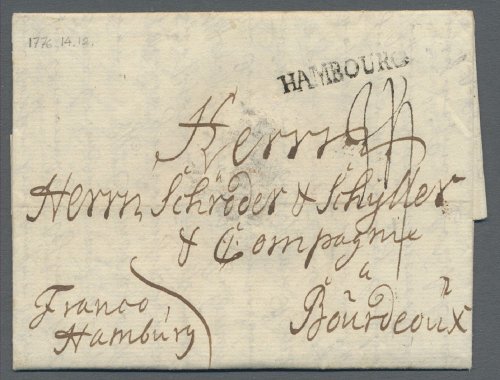 1776.14.12.
HAMBOURG
Herrn
Herrn Schröder & Schÿller
& Compagnie
a
Boürdeoüx
Franco
Hambürg